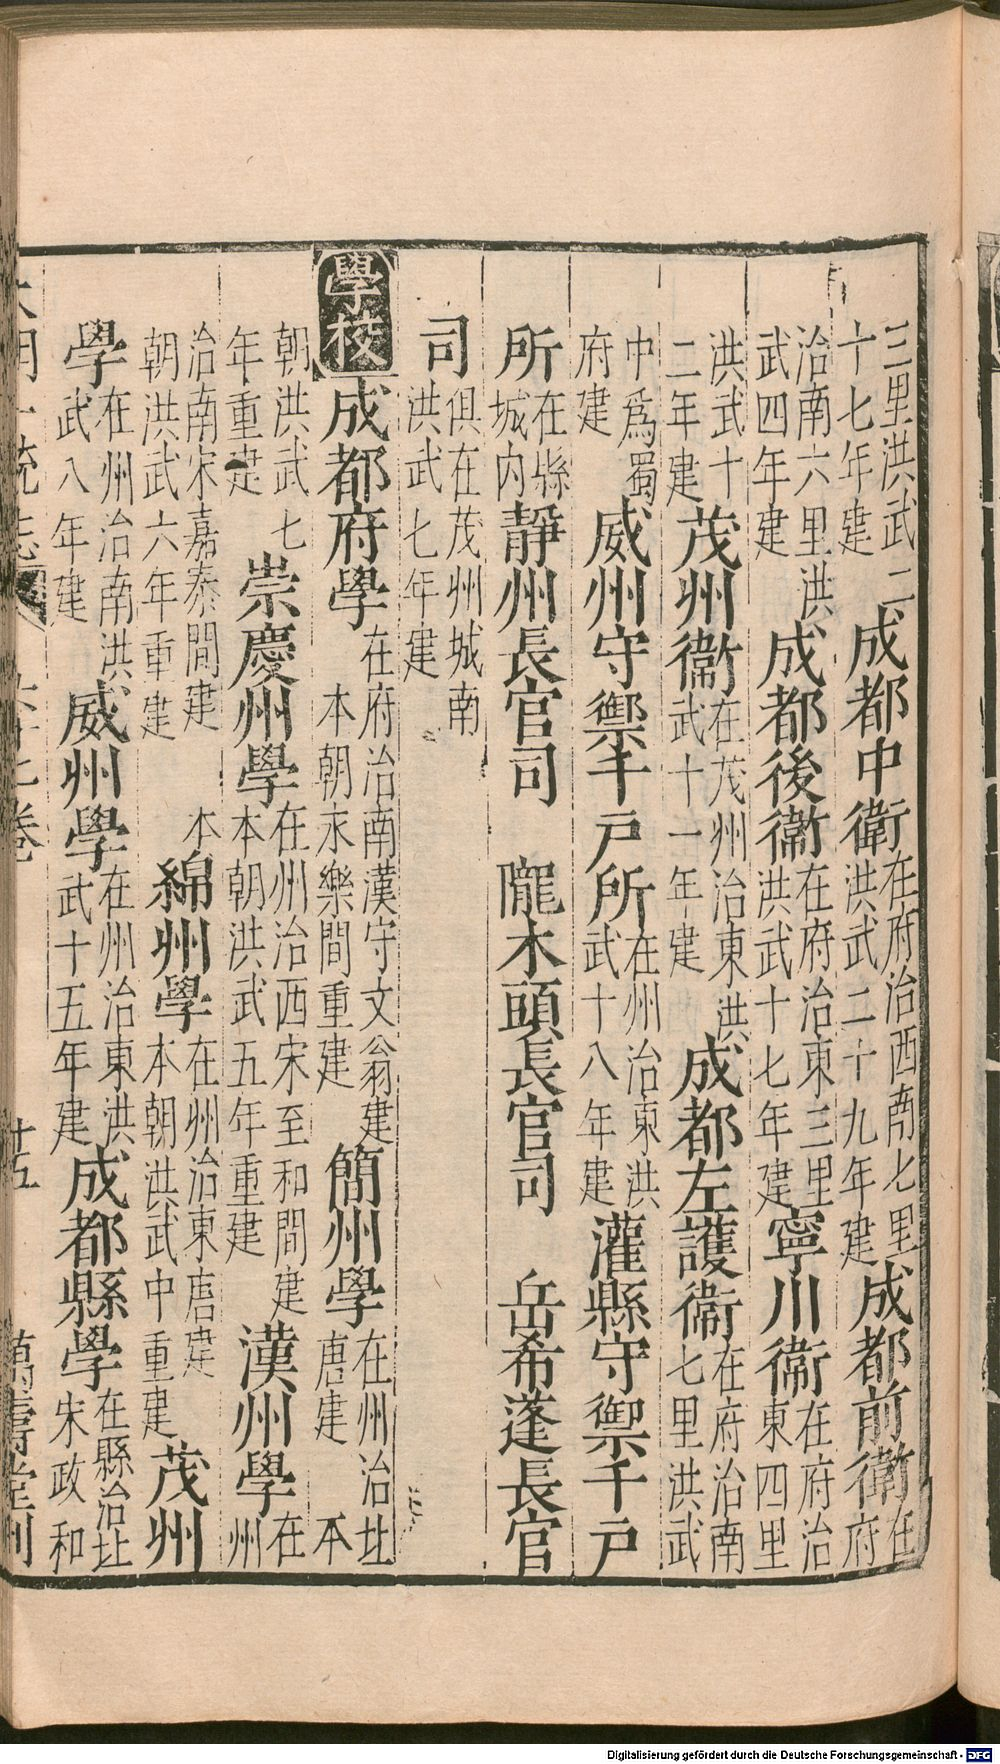 三里洪武二十七年建成都中衛在府治西南七里洪武二十九年建成都前衛在府
治南六里洪武四年建成都後衛在府治東三里洪武十七年建寧川衛在府治東四里
洪武十二年建茂州衛在茂州治東洪武十一年建成都左護衛在府治南七里洪武
中爲蜀府建威州守禦千戶所在州治東洪武十八年建灌縣守禦千戶
所在縣城內靜州長官司 隴木頭長官司 岳希蓬長官
司俱在茂州城南洪武七年建
學校成都府學在府治南漢守文翁建本朝永樂間重建簡州學在州治北唐建本
朝洪武七年重建崇慶州學在州治西宋至和間建本朝洪武五年重建漢州學在州
治南宋嘉泰間建本朝洪武六年重建綿州學在州治東唐建本朝洪武中重建茂州
學在州治南洪武八年建威州學在州治東洪武十五年建成都縣學在縣治北宋政和
大明一統志 卷 十五 萬壽堂刊
Digitalisierung gefördert durch die Deutsche Forschungsgemeinschaft - DFG